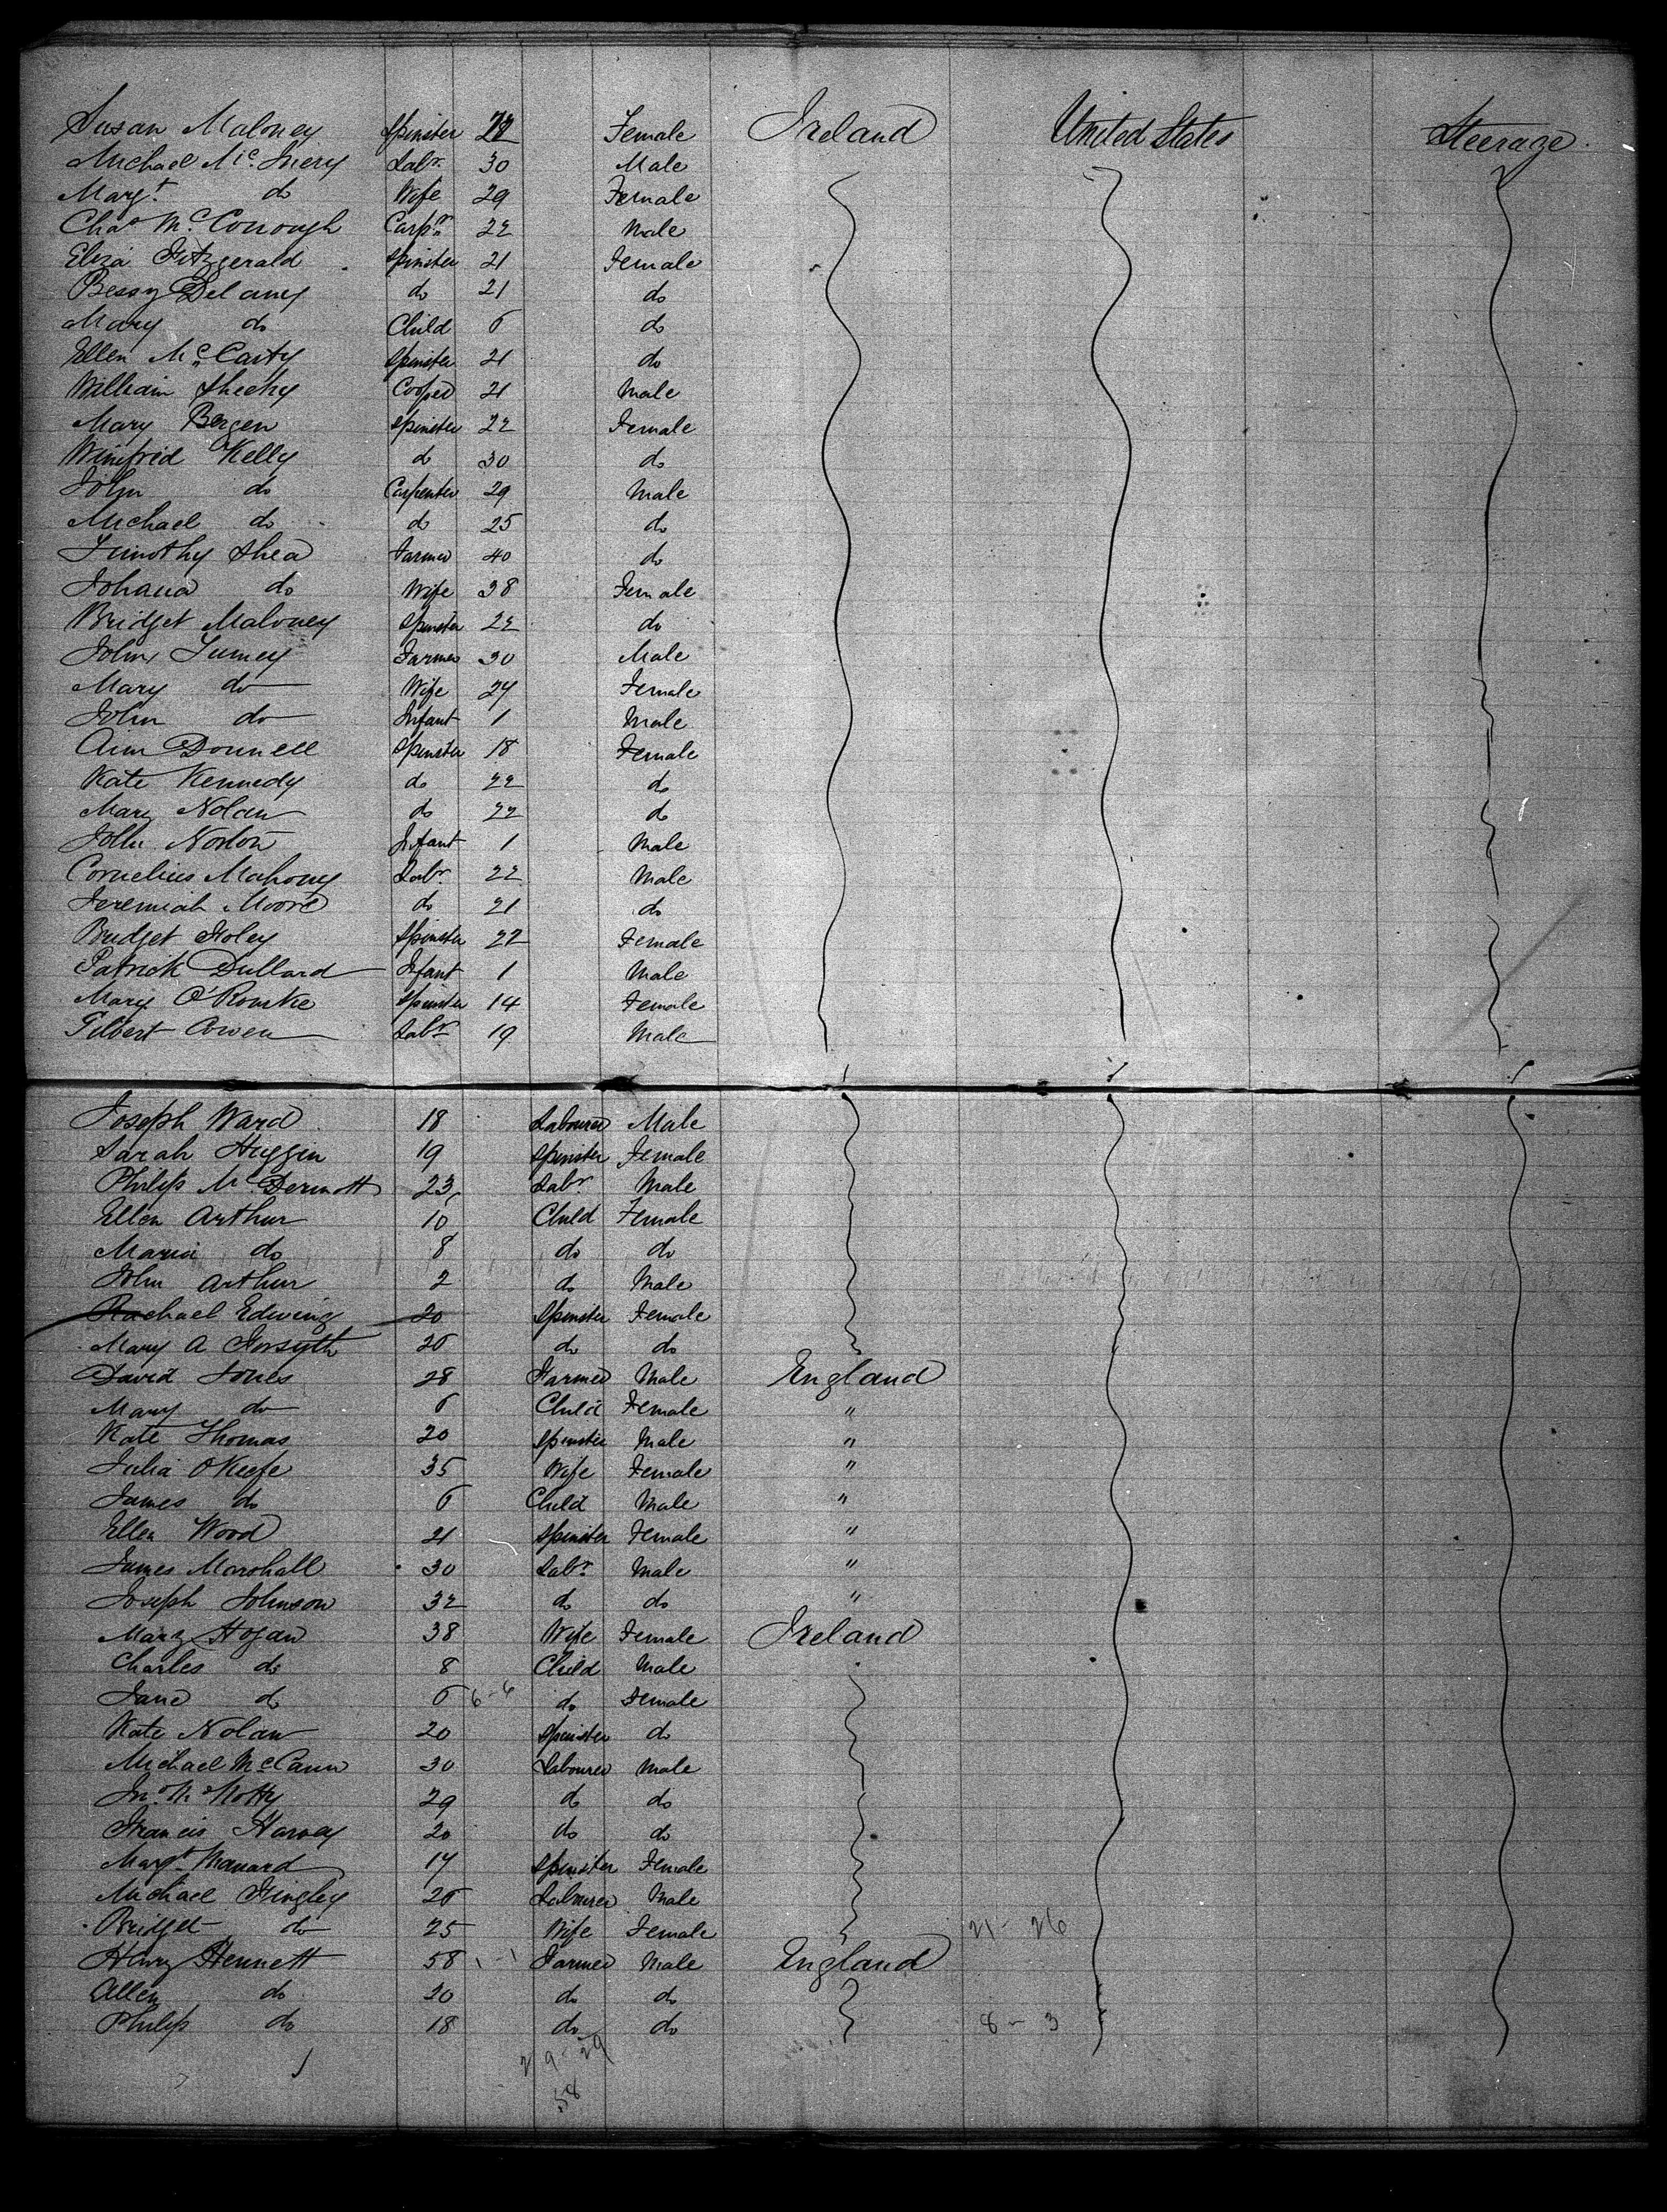 Susan Maloney Spinster 22 Female Ireland United States Steerage
Michael McInery Labr. 30 Male
Margt. do Wife 29 Female
Chas McConough Carpr. 22 Male
Eliza Fitzgerald Spinster 21 Female
Bessy Delany do 21 do
Mary do Child 6 do
Ellen McCarty Spinster 21 do
William Sheehy Cooper 21 Male
Mary Bergen Spinster 22 Female
Winifrid Kelly do 30 do
John do Carpenter 29 Male
Michael do do 25 do
Timothy Shea Farmer 40 do
Johana do Wife 38 Female
Bridget Maloney Spinster 22 do
John Tumey Farmer 30 Male
Mary do Wife 24 Female
John do Infant 1 Male
Ann Donnell Spinster 18 Female
Kate Kennedy do 22 do
Mary Nolan do 22 do
John Norton Infant 1 Male
Cornelius Mahony Labr. 22 Male
Jeremiah Moore do 21 do
Bridget Foley Spinster 22 Female
Patrick Dullard Infant 1 Male
Mary O'Rourke Spinster 14 Female
Owen Labr 19 Male
Joseph Ward 18 Labourer Male
Sarah Huggin 19 Spinster Female
Philip McDermott 23 Labr. Male
Ellen Arthur 10 Child Female
Maria do 8 do do
John Arthur 2 do Male
Rachael Edwing 20 Spinster Female
Mary A Forsyth 26 do do
David Jones 28 Farmer Male England
Mary do 6 Child Female "
Kate Thomas 20 Spinster Male "
Julia OKeefe 35 Wife Female "
James do 6 Child Male "
Ellen Wood 21 Spinster Female "
James Marshall 30 Labr. Male "
Joseph Johnson 32 do do "
Mary Hogan 38 Wife Female Ireland
Charles do 8 Child Male
Jane do 6 6-6 do Female
Kate Nolan 20 Spinster do
Michael McCann 30 Labourer Male
Jno. 29 do do
Francis Harvey 20 do do
Margt. Manard 17 Spinster Female
Michael Fingley 26 Labourer Male
Bridget do 25 Wife Female 21-26
Henry Hennett 58 1-1 Farmer Male England
Allen do 20 do do
Philip do 18 do do 8-3
29-29
58